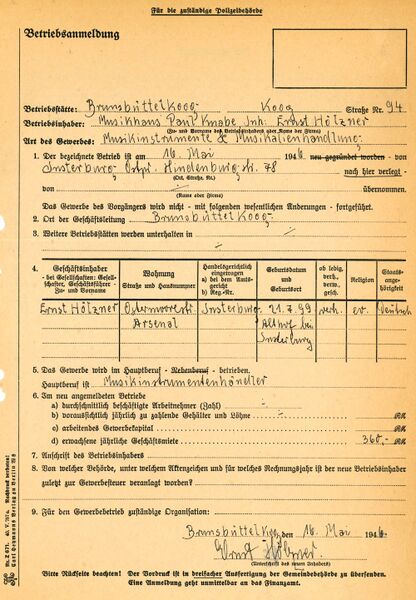 Für die zuständige Polizeibehörde
Betriebsanmeldung
Betriebsstätte: Brunsbüttelkoog Koog Straße Nr. 94
Betriebsinhaber: Musikhaus Paul Knabe Inh. Ernst Hölzner
(Zu- und Vorname des Betriebsinhabers oder Name der Firma)
Art des Gewerbes: Musikinstrumente & Musikalienhandlung
1. Der bezeichnete Betrieb ist am 16. Mai 1946 neu gegründet worden - von
Insterburg, Ostpr. Hindenburgstr. 78 nach hier verlegt -
(Ort, Straße, Nr.)
von ÷ übernommen.
(Name oder Firma)
Das Gewerbe des Vorgängers wird nicht - mit folgenden wesentlichen Änderungen - fortgeführt.
2. Ort der Geschäftsleitung Brunsbüttelkoog
3. Weitere Betriebsstätten werden unterhalten in ÷
÷
4. Geschäftsinhaber - bei Gesellschaften: Gesellschafter, Geschäftsführer - Zu- und Vorname
Wohnung Straße und Hausnummer
Handelsgerichtlich eingetragen a) bei dem Amtsgericht b) Reg.-Nr.
Geburtsdatum und Geburtsort
ob ledig, verh., verw., gesch.
Religion
Staatsangehörigkeit
Ernst Hölzner Insterburg 21.7.99 verh. ev. Deutsch
Arsenal Althof bei
Insterburg
5. Das Gewerbe wird im Hauptberuf - Nebenberuf - betrieben.
Hauptberuf ist Musikinstrumentenhändler
6. Im neu angemeldeten Betriebe
a) durchschnittlich beschäftigte Arbeitnehmer (Zahl) ÷
b) voraussichtlich jährlich zu zahlende Gehälter und Löhne ÷ RM
c) arbeitendes Gewerbekapital RM
d) erwachsene jährliche Geschäftsmiete 360,- RM
7. Anschrift des Betriebsinhabers
8. Von welcher Behörde, unter welchem Aktenzeichen und für welches Rechnungsjahr ist der neue Betriebsinhaber
zuletzt zur Gewerbesteuer veranlagt worden?
9. Für den Gewerbebetrieb zuständige Organisation:
Brunsbüttelkoog, den 16. Mai 1946
Ernst Hölzner
(Unterschrift des neuen Inhabers)
Bitte Rückseite beachten! Der Vordruck ist in dreifacher Ausfertigung der Gemeindebehörde zu übersenden.
Eine Anmeldung geht unmittelbar an das Finanzamt.
Nachdruck verboten!
Carl Heymanns Verlag zu Berlin W 8